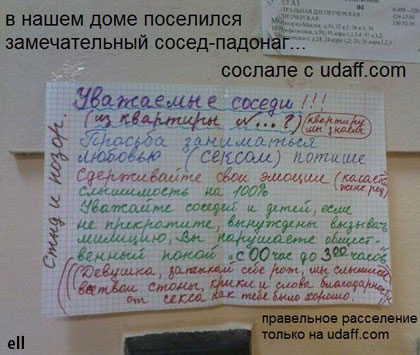 в нашем доме поселился
замечательный сосед-падонаг...
сослале с udaff.com
ГАЗ 04
Уважаемые соседи!!!
(из квартиры №...?) (квартиру мы знаем)
Просьба заниматься
любовью (сексом) потише
Сдерживайте свои эмоции (касается
слышимость на 100%
Уважайте соседей и детей, если
не прекратите, вынуждены вызывать
милицию, Вы нарушаете общест-
венный покой с 00 час до 3 00 часов
(Девушка, затыкай себе рот, мы слышим
все твои стоны, крики и слова благодарности
от секса как тебе было хорошо.)
Стид и позор.
правельное расселение
только на udaff.com
ell